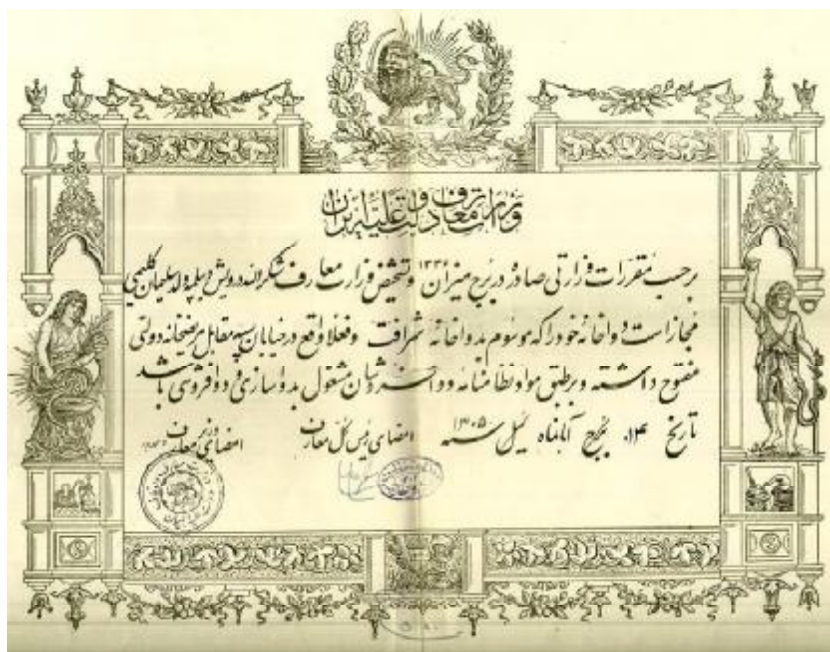 وزارت معارف دولت علیه ایران
برحسب مقررات وزارتی صادره در برج میزان ۱۳۳۶ و تشخیص وزارت معارف شکرالله درویش دیپلمه ولد سلیمان کلیمی
مجاز است دواخانه خود را که موسوم بدواخانه شرافت و فعلا واقع در خیابان سپه مقابل مریضخانه دولتی
مفتوح داشته و برطبق مواد نظامنامه دوافروشان مشغول بدواسازی و دوافروشی باشد
تاریخ ۱۴ برج آبانماه ئیل سنه ۱۳۰۵ امضای رئیس کل معارف امضای وزیر معارف